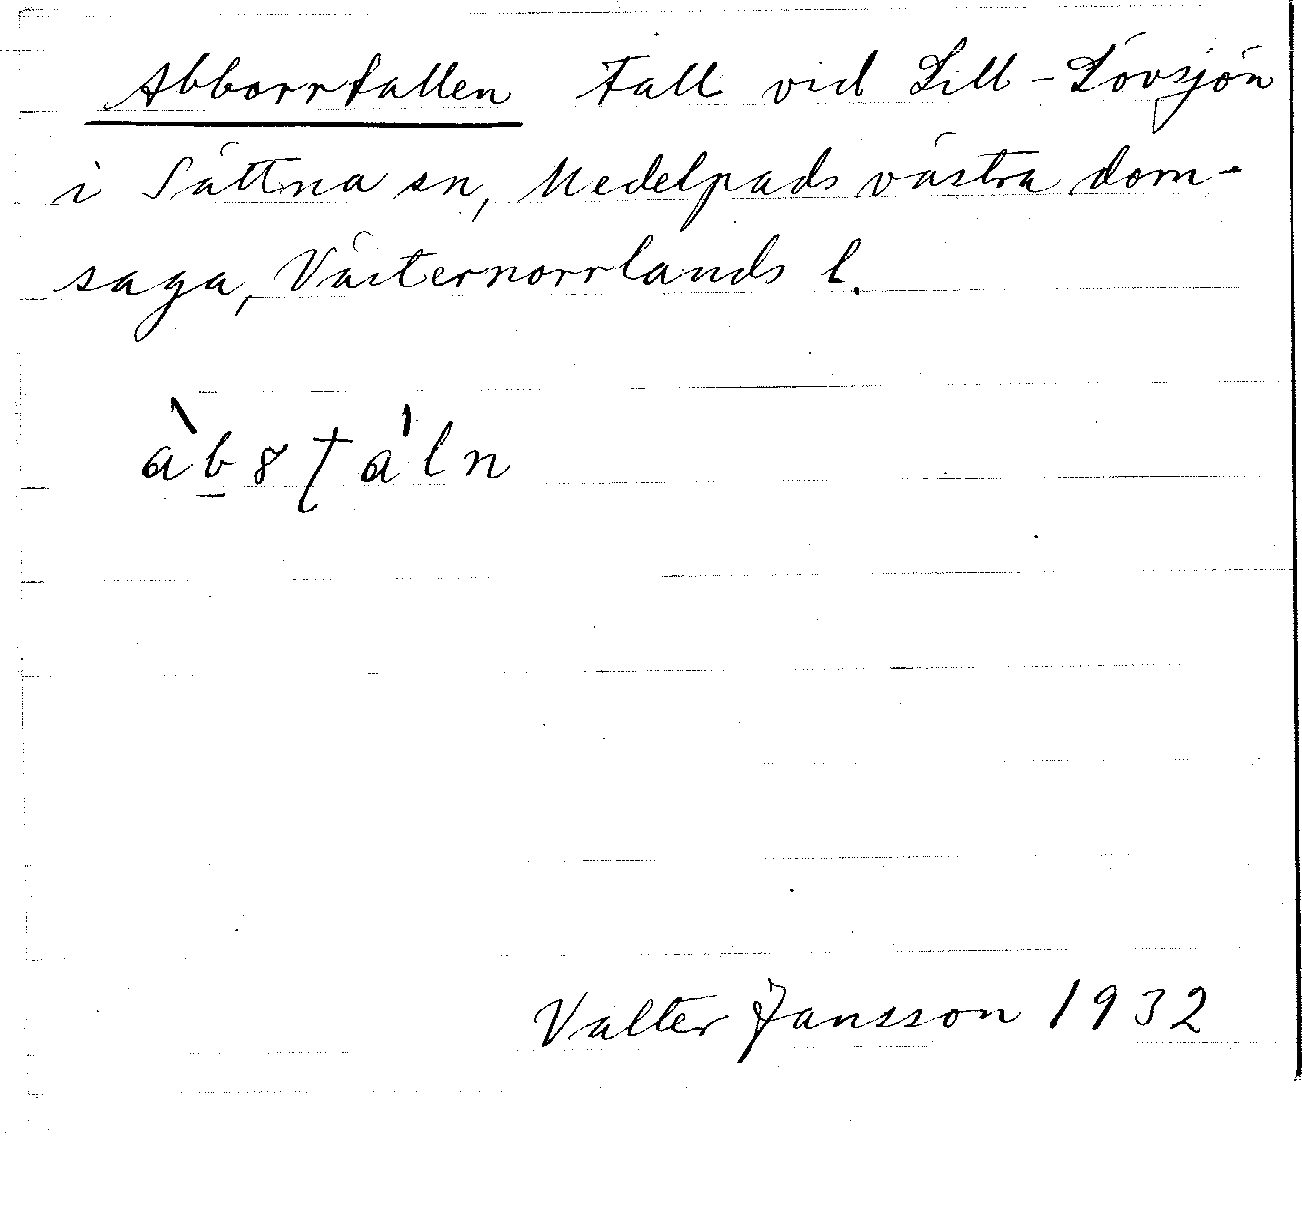 Abborrfallen Fall vid Lill-Lövsjön
i Sättna sn, Medelpads västra dom-
saga, Västernorrlands l.
àb̲8fáln
Valter Jansson 1932